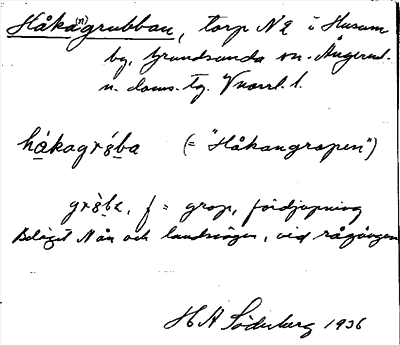 Håka(n)grubban, torp N 2 i Husum
by, Grundsunda sn. Ångerml.
n. doms. tg. Vnorrl. l.
håkagrŏ́ba (= "Håkangropen")
grŏ̀ba, f = grop, fördjupning
Beläget N ån och landsvägen, vid rågången
H A Söderberg 1936